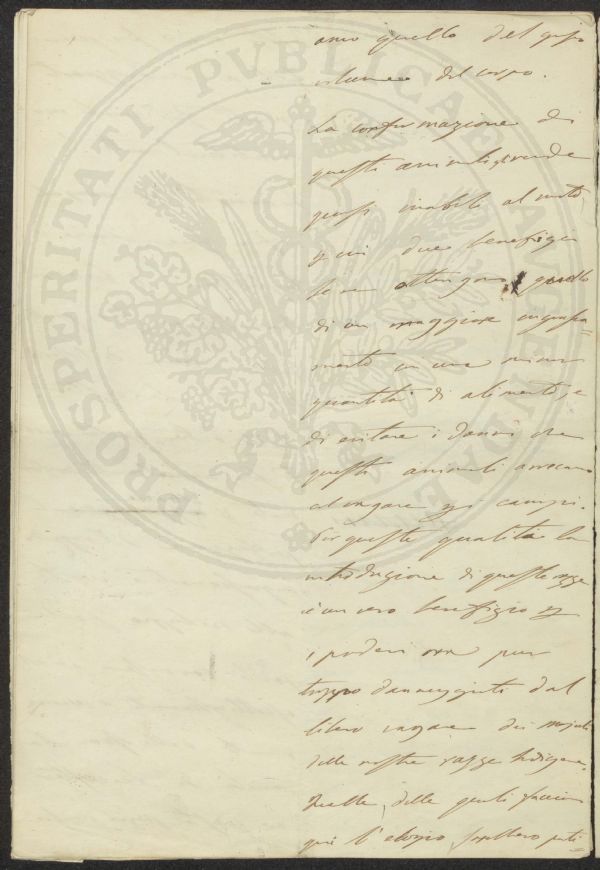 PROSPERITATI PUBLICAE AUGENDAE
ano quello del
volume del corpo.
La conformazione di
questi animali gi rende
quasi inabili al moto,
due benefizi
se ne ottengono, quello
di un maggiore ingrassa=
mento con una minor
quantità di alimento, e
di evitare i danni che
questi animali arrecano
al vagare campi.
Per queste qualità la
introduzione di queste razze
è un vero benefizio
i poderi ora pur
troppo danneggiati dal
libero vagare dei majali
delle nostre razze indigene.
Quelle, delle quali facciam
qui l'elogio,